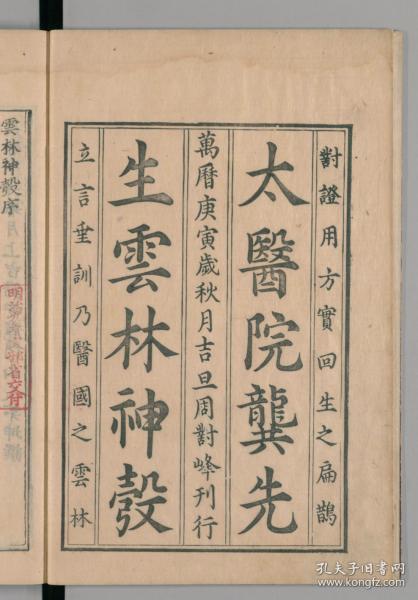 對證用方實回生之扁鵲
太醫院龔先
萬曆庚寅歲秋月吉旦周對峰刊行
生雲林神彀
立言垂訓乃醫國之雲林
雲林神彀序
孔夫子旧书网
www.kongfz.com